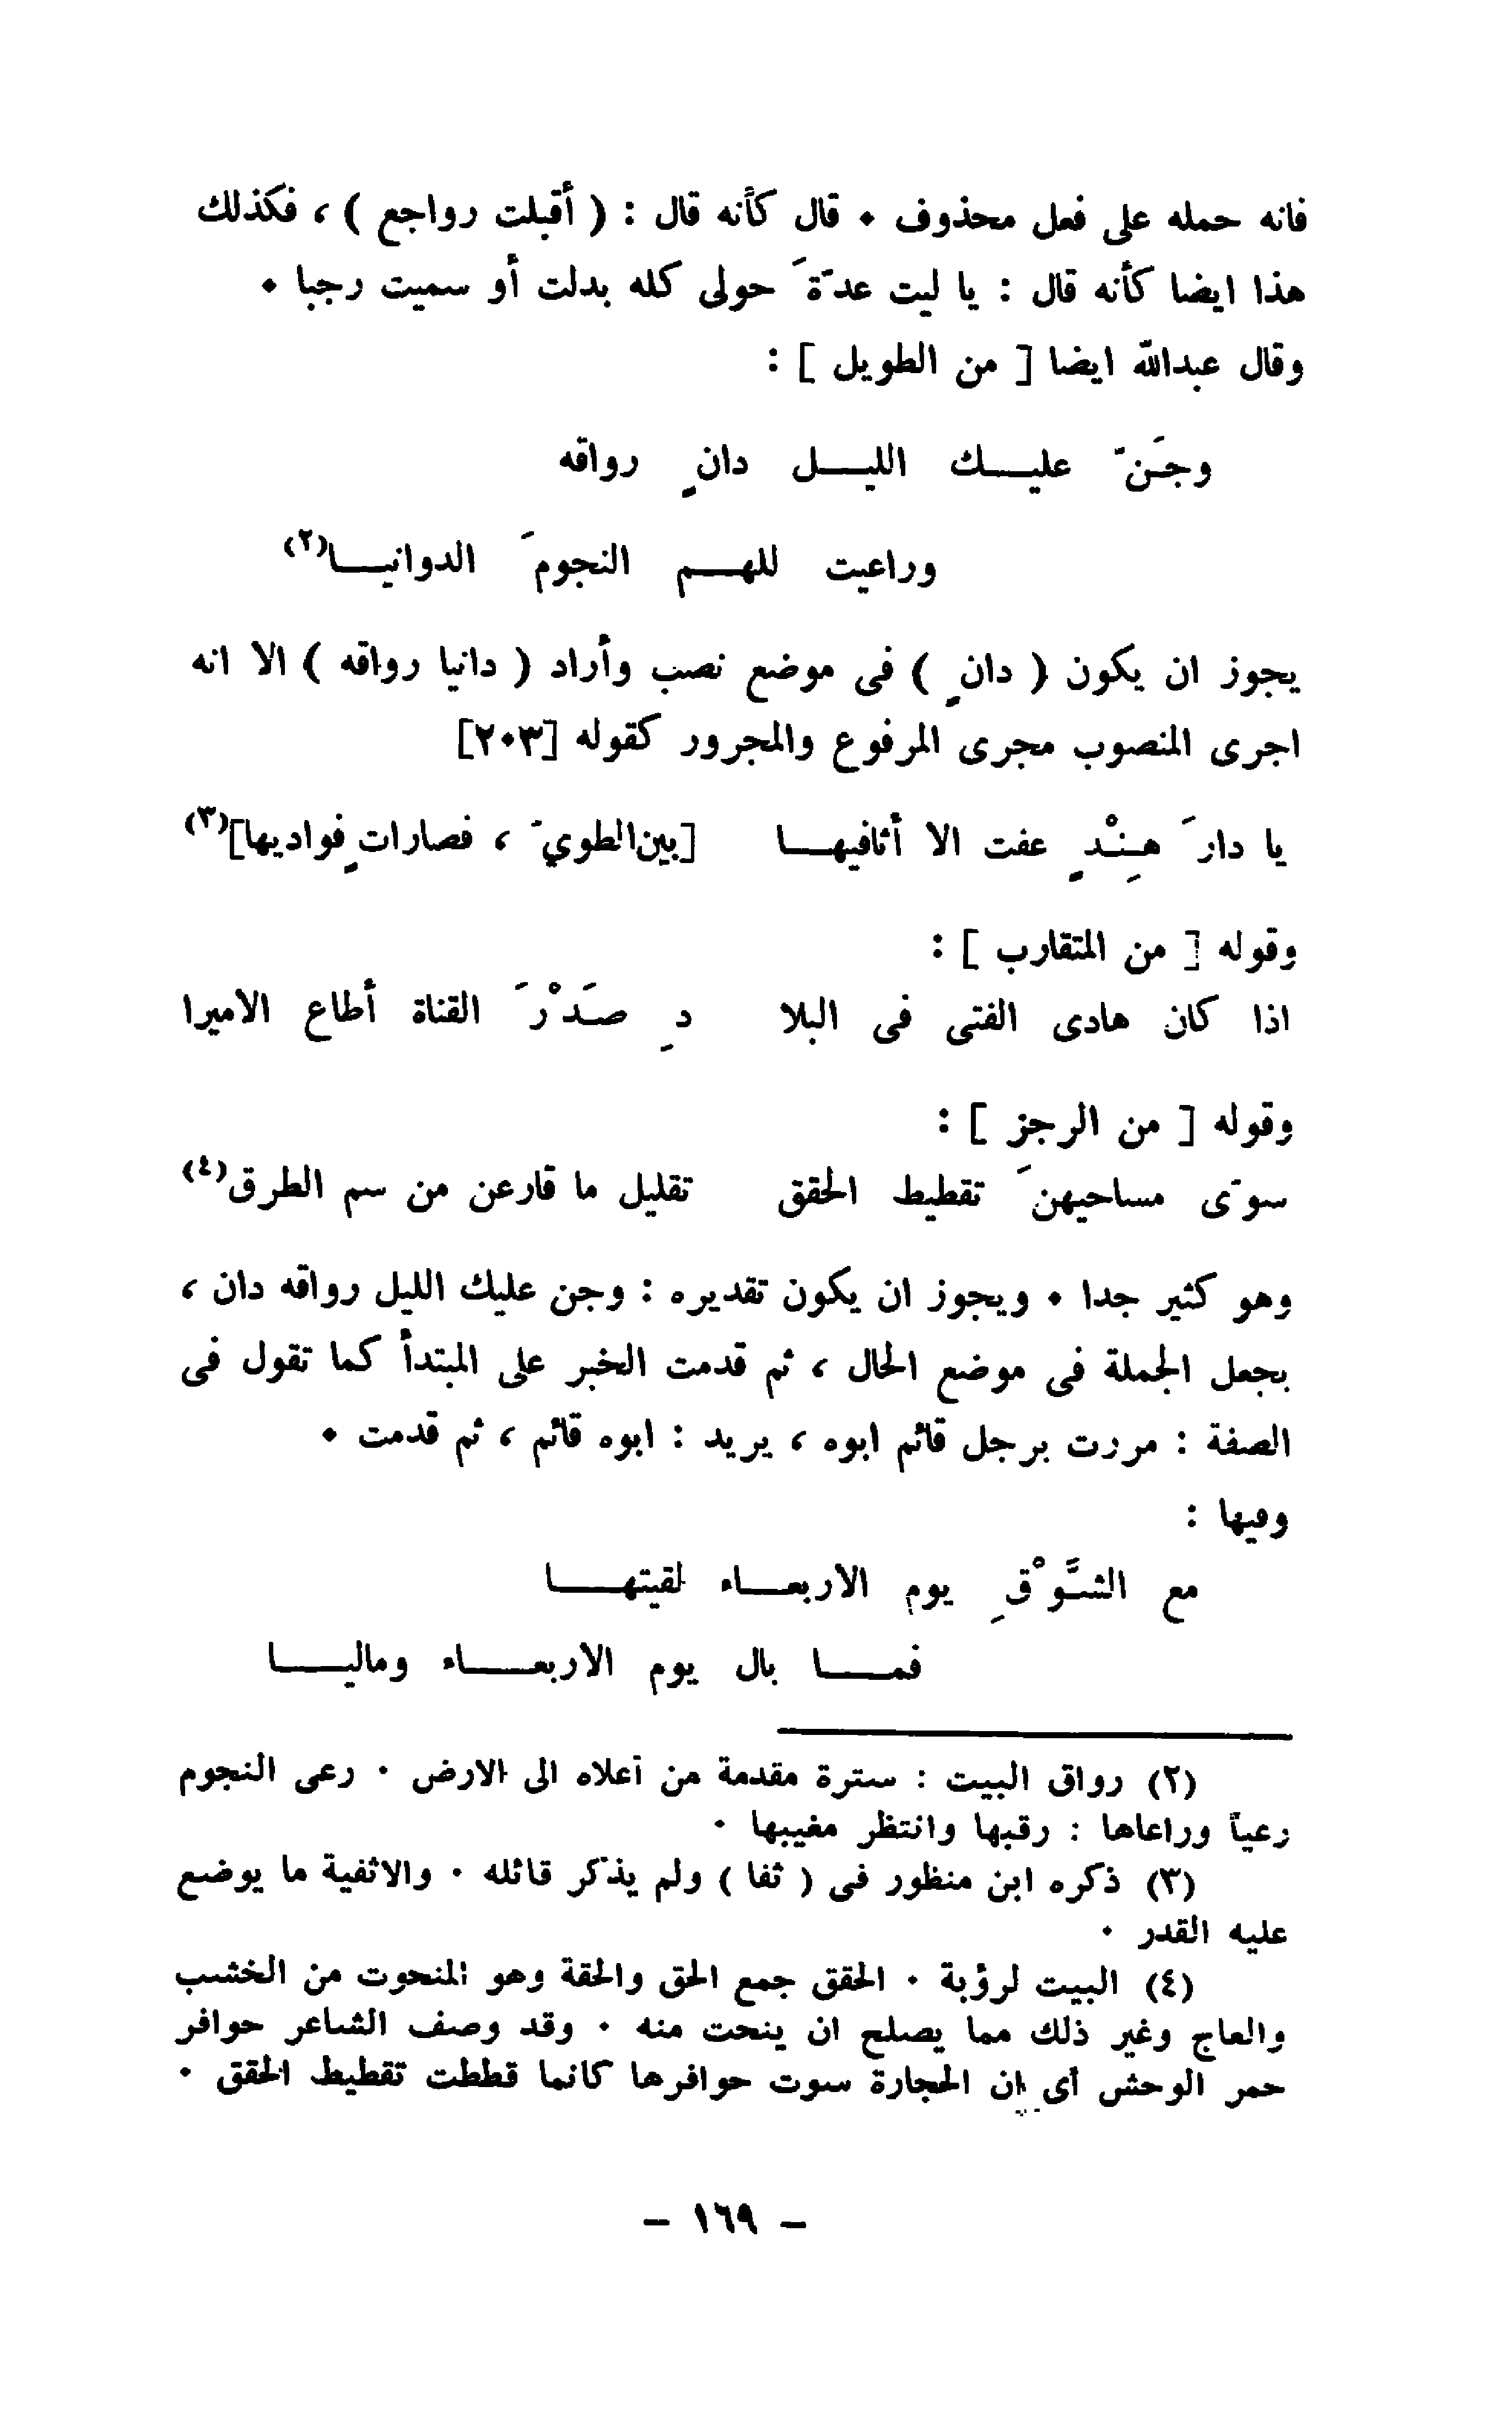 فانه حمله على فعل محذوف • قال كأنه قال : ( أقبلت رواجع ) ، فكذلك
هذا ايضا كأنه قال : يا ليت عدّةَ حولى كله بدلت أو سميت رجبا •
وقال عبدالله ايضا [ من الطويل ] :
وجَنّ عليـــك الليـــل دانٍ رواقه
وراعيت للهـــم النجومَ الدوانيـــا(٢)
يجوز ان يكون ( دانٍ ) فى موضع نصب وأراد ( دانيا رواقه ) الا انه
اجرى المنصوب مجرى المرفوع والمجرور كقوله [٢٠٣]
يا دارَ هِنْدٍ عفت الا أثافيهـــا [بين الطويّ ، فصاراتٍ فواديها](٣)
وقوله [ من المتقارب ] :
اذا كان هادى الفتى فى البلا دِ صَدْرَ القناة أطاع الاميرا
وقوله [ من الرجز ] :
سوّى مساحيهنَ تقطيط الحقق تقليل ما قارعن من سم الطرق(٤)
وهو كثير جدا • ويجوز ان يكون تقديره : وجن عليك الليل رواقه دان ،
بجعل الجملة فى موضع الحال ، ثم قدمت الخبر على المبتدأ كما تقول فى
الصفة : مررت برجل قائم ابوه ، يريد : ابوه قائم ، ثم قدمت •
وفيها :
مع الشَّوْقِ يوم الاربعـــاء لقيتهـــا
فمـــا بال يوم الاربعـــاء وماليـــا
(٢) رواق البيت : سترة مقدمة من أعلاه الى الارض • رعى النجوم
رعياً وراعاها : رقبها وانتظر مغيبها •
(٣) ذكره ابن منظور فى ( ثفا ) ولم يذكر قائله • والاثفية ما يوضع
عليه القدر •
(٤) البيت لرؤبة • الحقق جمع الحق والحقة وهو المنحوت من الخشب
والعاج وغير ذلك مما يصلح ان ينحت منه • وقد وصف الشاعر حوافر
حمر الوحش أى ان الحجارة سوت حوافرها كانما قططت تقطيط الحقق •
– ١٦٩ –